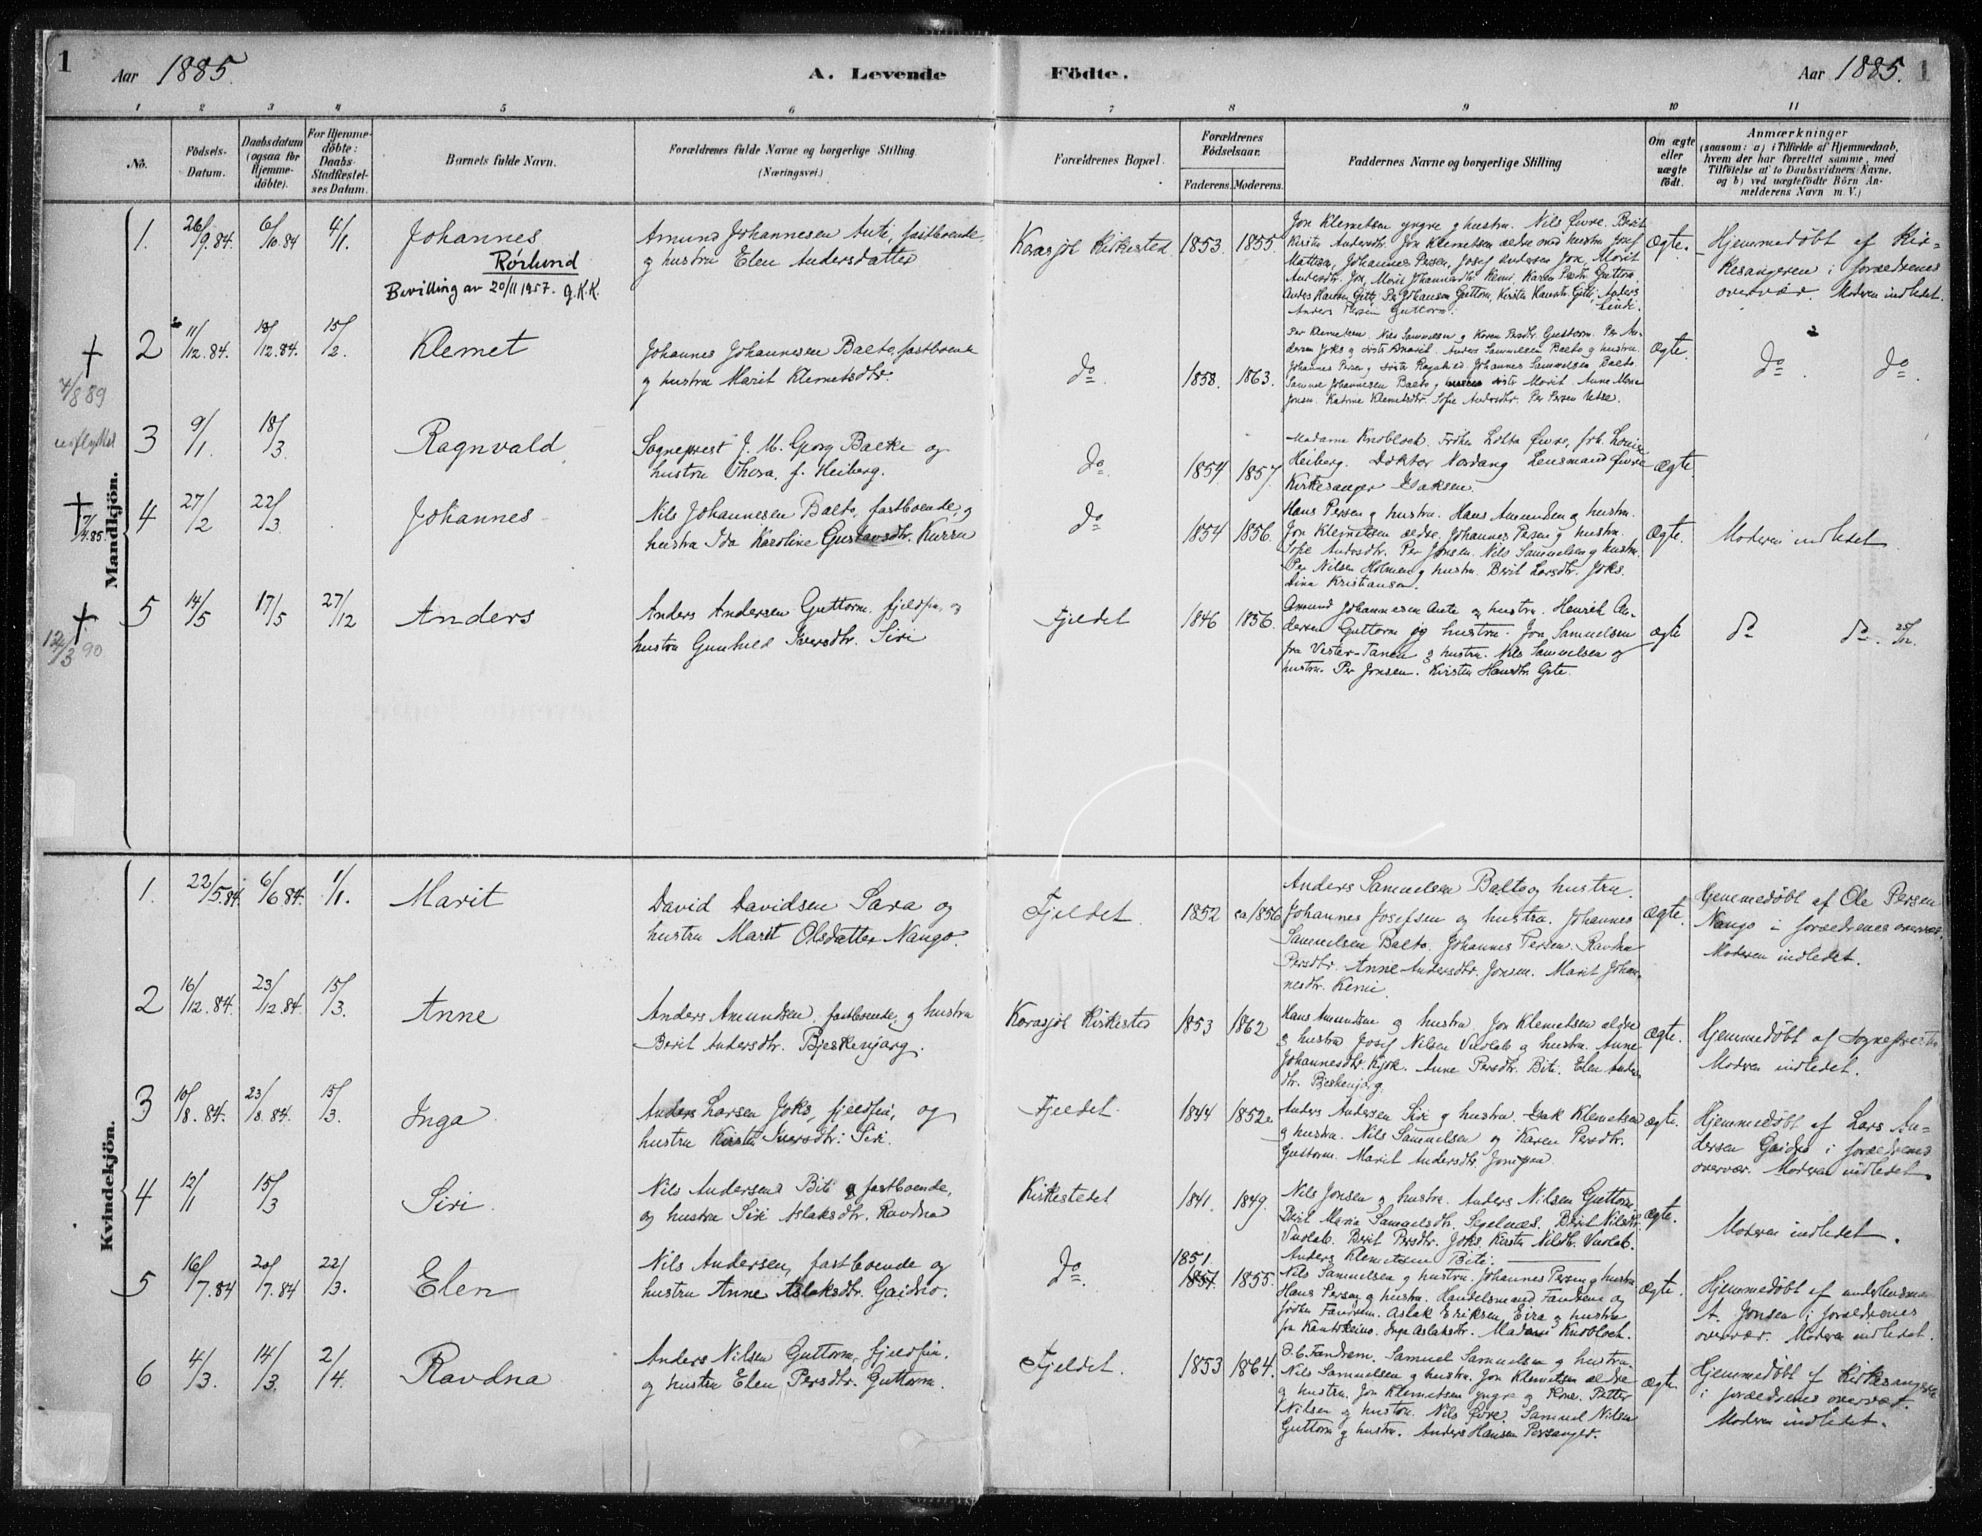 1
Aar 1885.
A. Levende
Födte.
Aar 1885. 1
1 2 3 4 5 6 7 8 9 10 11
No.
Födsels-
Datum.
Daabsdatum
(ogsaa for
Hjemme-
döbte).
For Hjemme-
döbte:
Daabs-
Stadfæstel-
ses Datum.
Barnets fulde Navn.
Forældrenes fulde Navne og borgerlige Stilling
(Næringsvei.)
Forældrenes Bopæl.
Forældrenes
Födselsaar.
Faderens. Moderens.
Faddernes Navne og borgerlige Stilling
Om ægte
eller
uægte
födt.
Anmærkninger
(saasom: a) i Tilfælde af Hjemmedaab,
hvem der har forrettet samme, med
Tilföielse af to Daabsvidners Navne,
og b) ved uægtefödte Börn An-
melderens Navn m. V.)
Mandkjön.
1. 26/9.84. 6/10 84 4/1.
Johannes
Rørlund
Bevilling av 20/11 1957. g.K.K.
Amund Johannesen Aute, fastboende,
og hustru Elen Andersdatter
Karasjok Kirkested 1853 1855
Jon Klemetsen yngre g hustru. Nils Øvre. Berit
Kirsten Andersdtr. Jon Klemetsen ældre med hustru Josef
Mattsen, Johannes Persen, Josef Andersen Jon, Marit
Anders Persen Guttorm.
Ægte.
Hjemmedøbt af Kir-
kesangeren i forældrenes
overvær. Moderen indledet.
† 7/8 89
2 11/12.84. 18/12.84. 15/2.
Klemet
Johannes Johannesen Balto, fastboende
g hustru Marit Klemetsdtr.
do. 1858. 1863.
Per Klemetsen. Nils Samuelsen g Karen Persdtr Guttorm. Per An-
dersen Joks g Anders Samuelsen Balto g hustru.
Johannes Persen g Johannes Samuelsen Balto
Samme Johannesen Balto g Marit. Anne Marie
Jonsen. Katrine Klemetsdtr. Sofie Andersdtr. Per Persen
Ægte.
do. do.
udflyttet
3 9/1. 18/3.
Ragnvald
Sogneprest J. M. Georg Balke og
hustru Thora f. Heiberg.
do 1854. 1857.
Madame Knobloch. Frøken Lolta Øvre, frk. Louise
Heiberg. Doktor Nordang Lensmand Øvre
Kirkesanger Isaksen.
Ægte.
† 7/4.85
4 27/2 22/3.
Johannes
Nils Johannesen Balto, fastboende, g
hustru Ida Karoline Gustavsdtr. Kurra
do 1854 1856.
Hans Persen g hustru. Hans Amundsen g hustru.
Jon Klemetsen ældre. Johannes Persen g hustru.
Sofie Andersdtr. Per Jonsen. Nils Samuelsen g hustru.
Per Nilsen Holmen g hustru. Berit Larsdtr. Joks.
Lina Kristiansen.
Ægte.
Moderen indledet
† 12/3 90
5 14/5 17/5 27/12
Anders
Anders Andersen Guttorm. fjeldfin, og
hustru Gunhild Iversdtr. Siri
Fjeldet 1846 1856.
Amund Johannesen Aute og hustru. Henrik An-
dersen Guttorm og hustru. Jon Samuelsen
fra Vester-Tanen g hustru. Nils Samuelsen og
hustru. Per Jonsen. Kirsten Hansdtr Gete.
Ægte
do do. 25/12.
Kvindekjön.
1. 22/5.84. 6/6 84. 1/1.
Marit
David Davidsen Sara og
hustru Marit Olsdatter Nango.
Fjeldet. 1852 ca 1856
Anders Samuelsen Balto g hustru.
Johannes Josefsen og hustru. Johannes
Samuelsen Balto. Johannes Persen. Ravdna
Persdtr. Anne Andersdtr. Jonsen. Marit Johan-
nesdtr. Kemi.
Ægte.
Hjemmedøbt af Ole Persen
Nango i forældrenes overvær.
Moderen indledet.
2 16/12.84. 23/12.84. 15/3.
Anne
Anders Amundsen, fastboende, g hustru
Berit Andersdtr. Bjeskenjarg.
Karasjok Kirkested 1853 1862
Hans Amundsen g hustru Jon Klemetsen ældre
g hustru Josef Nilsen Vuolab g hustru. Anne
Johannesdtr. Kjok. Anne Persdtr. Biti. Elen Anders-
dtr. Bjeskenjarg.
Ægte.
Hjemmedøbt af Sognepresten
Moderen indledet.
3 10/8.84. 23/8.84. 15/3.
Inga
Anders Larsen Joks, fjeldfin, og
hustru Kirsti Iversdtr. Siri.
Fjeldet. 1844 1852
Anders Andersen Siri g hustru. Isak Klemetsen
g hustru. Nils Samuelsen og Karen Persdtr.
Guttorm. Marit Andersdtr.
ægte.
Hjemmedøbt af Lars An-
dersen Gaidno i forældrenes
overvær. Moderen indledet.
4 12/1 15/3
Siri.
Nils Andersen Biti fastboende,
og hustru Siri Aslaksdtr. Ravdna
Kirkestedet 1841. 1849.
Nils Jonsen g hustru. Anders Nilsen Guttorm.
Berit Maria Samuelsdtr. Segelnæs. Berit Nilsdtr.
Vuolab. Berit Persdtr. Joks. Kirsten Nilsdtr. Vuolab.
Anders Klemetsen Biti.
ægte.
Moderen indledet.
5 16/7.84 20/7.84 22/3.
Elen
Nils Andersen, fastboende og
hustru Anne Aslaksdtr. Gaidno.
do. 1851. 1855.
Nils Samuelsen g hustru. Johannes Persen g hustru
Hans Persen g hustru. Handelsmand Fandrem og
frøken Fandrem. Aslak Eriksen Eira g hustru
fra Kautokeino. Inga Aslaksdtr. Madam Knobloch.
Ægte.
Hjemmedøbt af underlensmand
A. Jonsen i forældrenes
overvær. Moderen indledet.
6 4/3. 14/3. 2/4.
Ravdna
Anders Nilsen Guttorm, fjeldfin.
og hustru Elen Persdtr. Guttorm.
Fjeldet. 1853 1864.
Fandrem. Samuel Samuelsen g hustru
Nils Samuelsen g hustru. Jon Klemetsen ældre
g hustru. Jon Klemetsen yngre g Kone. Petter
Nilsen g hustru. Nils Øvre. Samuel Nilsen
Guttorm g hustru. Anders Hansen Persanger.
ægte.
Hjemmedøbt af Kirkesangeren
i forældrenes overvær.
Moderen indledet.